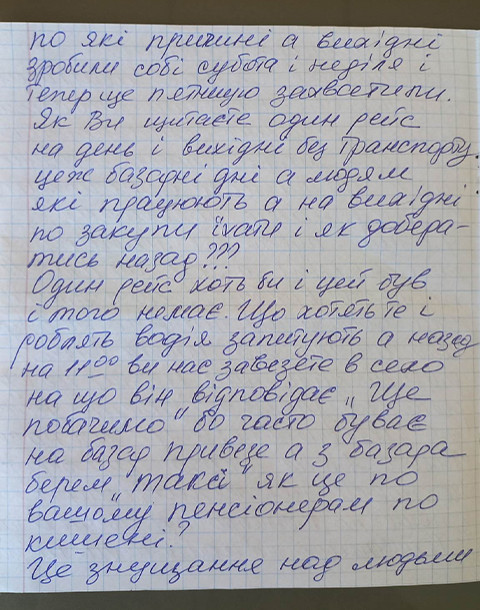 по які причині а вихідні
зробили собі субота і неділя і
тепер ще п'ятницю захвостили.
Як Ви щитаєте один рейс
на день і вихідні без транспорту,
цеж базарні дні а людям
які працюють а на вихідні
по закупи їхати і як добера-
тись назад???
Один рейс хоть би і цей був
і того немає. Що хотять те і
роблять водія запитують а назад
на 11⁰⁰ ви нас завезете в село
на що він відповідає „Ще
побачимо" бо часто буває
на базар привезе а з базара
берем „таксі" як це по
вашому пенсіонерам по
кишені?
Це знущання над людьми